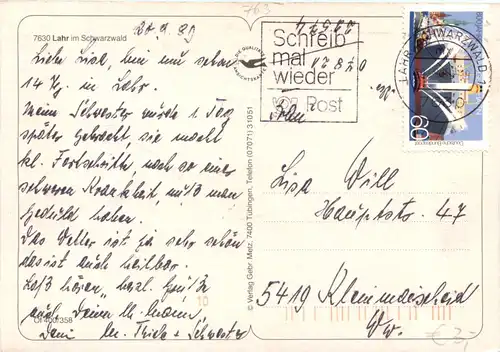 763
7630 Lahr im Schwarzwald
20.9.89
Liebe Lisa, bin nu schon
14 Tg. in Lahr.
Meine Schwester wurde 1 Tag
später gebracht, sie macht
kl. Fortschritte, nach so einer
schweren Krankheit, muß man
Geduld haben.
Das Wetter ist ja sehr schön
das ist auch heilbar.
Laß hören, herzl. Grüße
auch Deinem
+ Schwester
Gf 400/358
10
© Verlag Gebr. Metz, 7400 Tübingen, Telefon (07071) 31051
Schreib
mal
wieder
Post
LAHR, SCHWARZWALD
60
Lisa Will
Hauptstr. 47
5419 Kleinmaischeid
Ww.